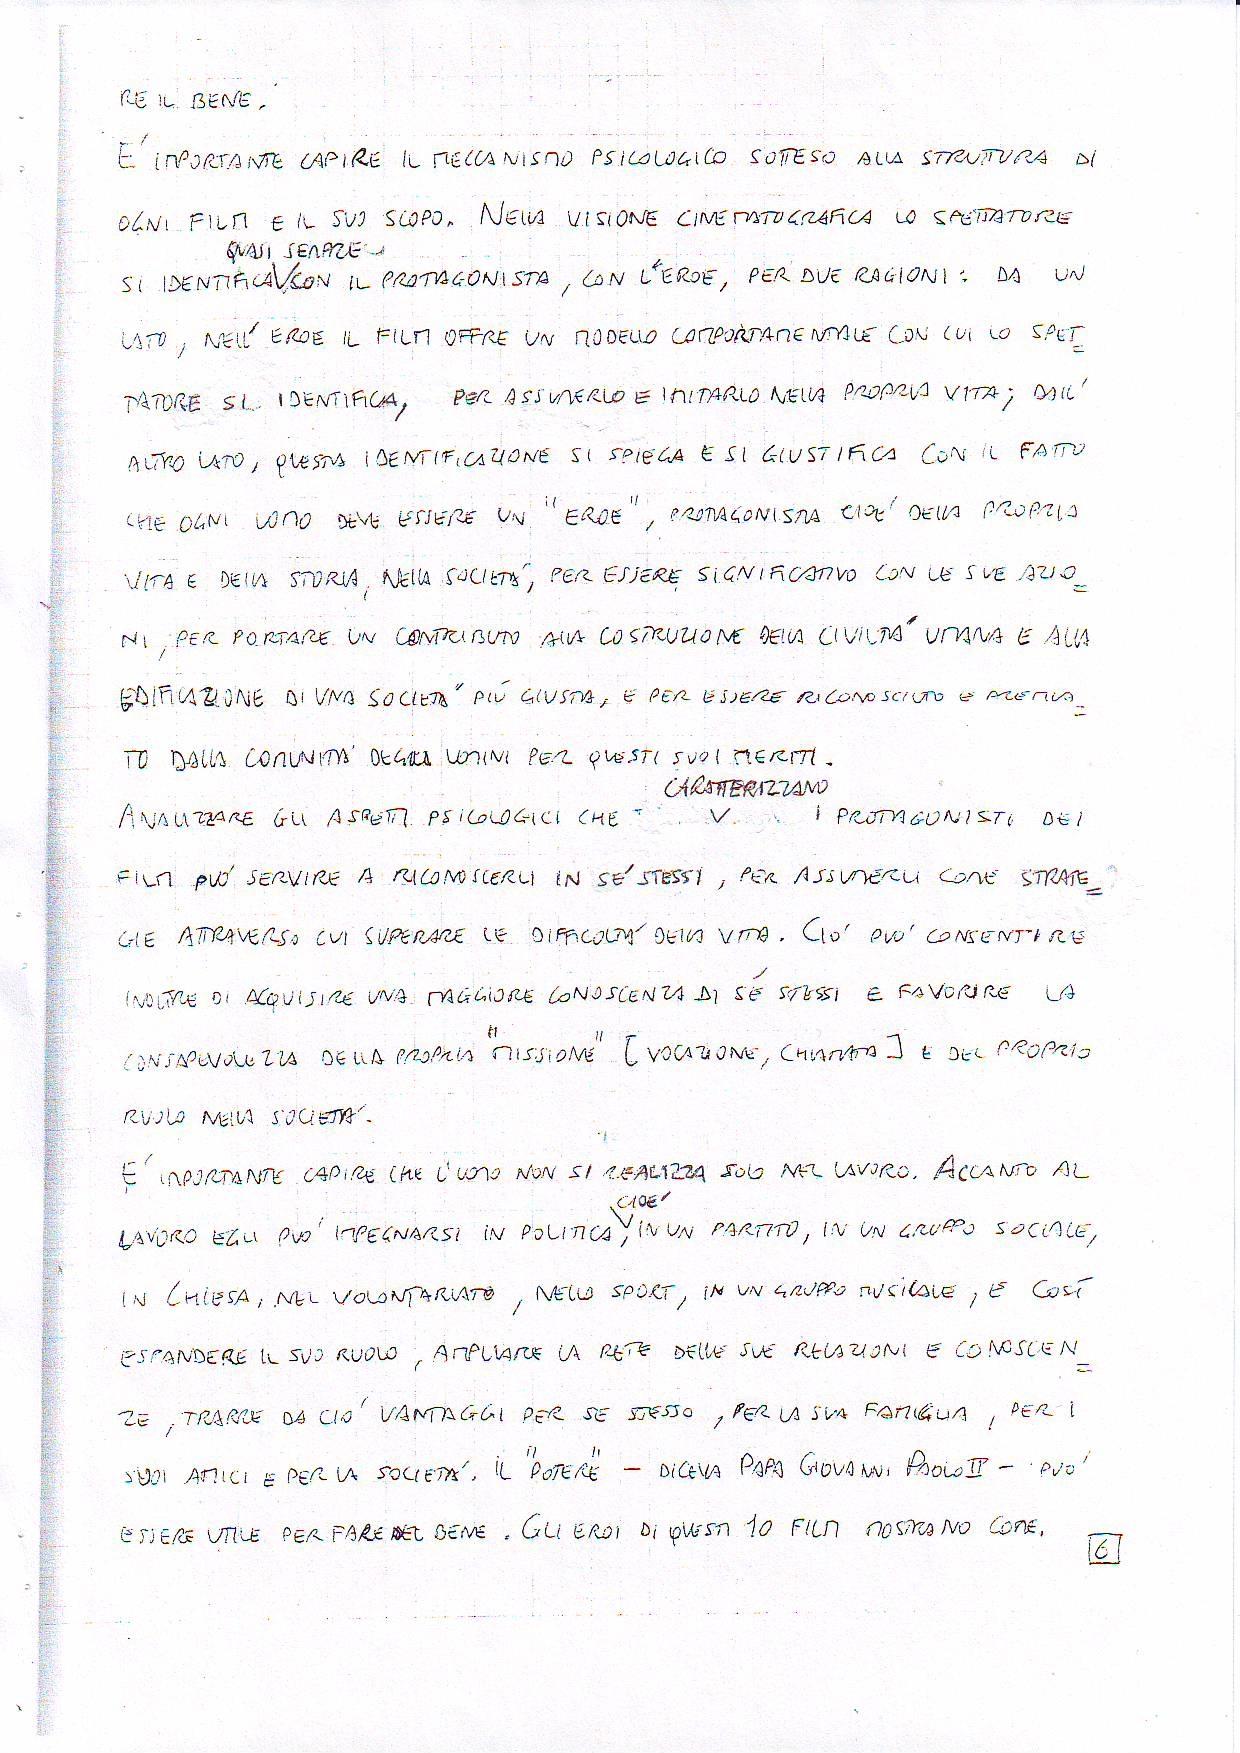 RE IL BENE.
E' IMPORTANTE CAPIRE IL MECCANISMO PSICOLOGICO SOTTESO ALLA STRUTTURA DI
OGNI FILM E IL SUO SCOPO. NELLA VISIONE CINEMATOGRAFICA LO SPETTATORE
QUASI SEMPRE
SI IDENTIFICA CON IL PROTAGONISTA, CON L'EROE, PER DUE RAGIONI: DA UN
LATO, NELL'EROE IL FILM OFFRE UN MODELLO COMPORTAMENTALE CON CUI LO SPET
TATORE SI IDENTIFICA, PER ASSUMERLO E IMITARLO NELLA PROPRIA VITA; DALL'
ALTRO LATO, QUESTA IDENTIFICAZIONE SI SPIEGA E SI GIUSTIFICA CON IL FATTO
CHE OGNI UOMO DEVE ESSERE UN "EROE", PROTAGONISTA CIOE' DELLA PROPRIA
VITA E DELLA STORIA, NELLA SOCIETA', PER ESSERE SIGNIFICATIVO CON LE SUE AZIO
NI, PER PORTARE UN CONTRIBUTO ALLA COSTRUZIONE DELLA CIVILTA' UMANA E ALLA
EDIFICAZIONE DI UNA SOCIETA' PIÙ GIUSTA, E PER ESSERE RICONOSCIUTO E PREMIA
TO DALLA COMUNITA' DEGLI UOMINI PER QUESTI SUOI MERITI.
CARATTERIZZANO
ANALIZZARE GLI ASPETTI PSICOLOGICI CHE V I PROTAGONISTI DEI
FILM PUO' SERVIRE A RICONOSCERLI IN SE' STESSI, PER ASSUMERLI COME STRATE
GIE ATTRAVERSO CUI SUPERARE LE DIFFICOLTA' DELLA VITA. CIO' PUO' CONSENTIRE
INOLTRE DI ACQUISIRE UNA MAGGIORE CONOSCENZA DI SÉ STESSI E FAVORIRE LA
CONSAPEVOLEZZA DELLA PROPRIA "MISSIONE" [VOCAZIONE, CHIAMATA] E DEL PROPRIO
RUOLO NELLA SOCIETA'.
E' IMPORTANTE CAPIRE CHE L'UOMO NON SI REALIZZA SOLO NEL LAVORO. ACCANTO AL
CIOE'
LAVORO EGLI PUO' IMPEGNARSI IN POLITICA, IN UN PARTITO, IN UN GRUPPO SOCIALE,
IN CHIESA, NEL VOLONTARIATO, NELLO SPORT, IN UN GRUPPO MUSICALE, E COSÌ
ESPANDERE IL SUO RUOLO, AMPLIARE LA RETE DELLE SUE RELAZIONI E CONOSCEN
ZE, TRARRE DA CIO' VANTAGGI PER SE STESSO, PER LA SUA FAMIGLIA, PER I
SUOI AMICI E PER LA SOCIETA'. IL "POTERE" - DICEVA PAPA GIOVANNI PAOLO II - PUO'
ESSERE UTILE PER FARE DEL BENE. GLI EROI DI QUESTI 10 FILM MOSTRANO COME.
6